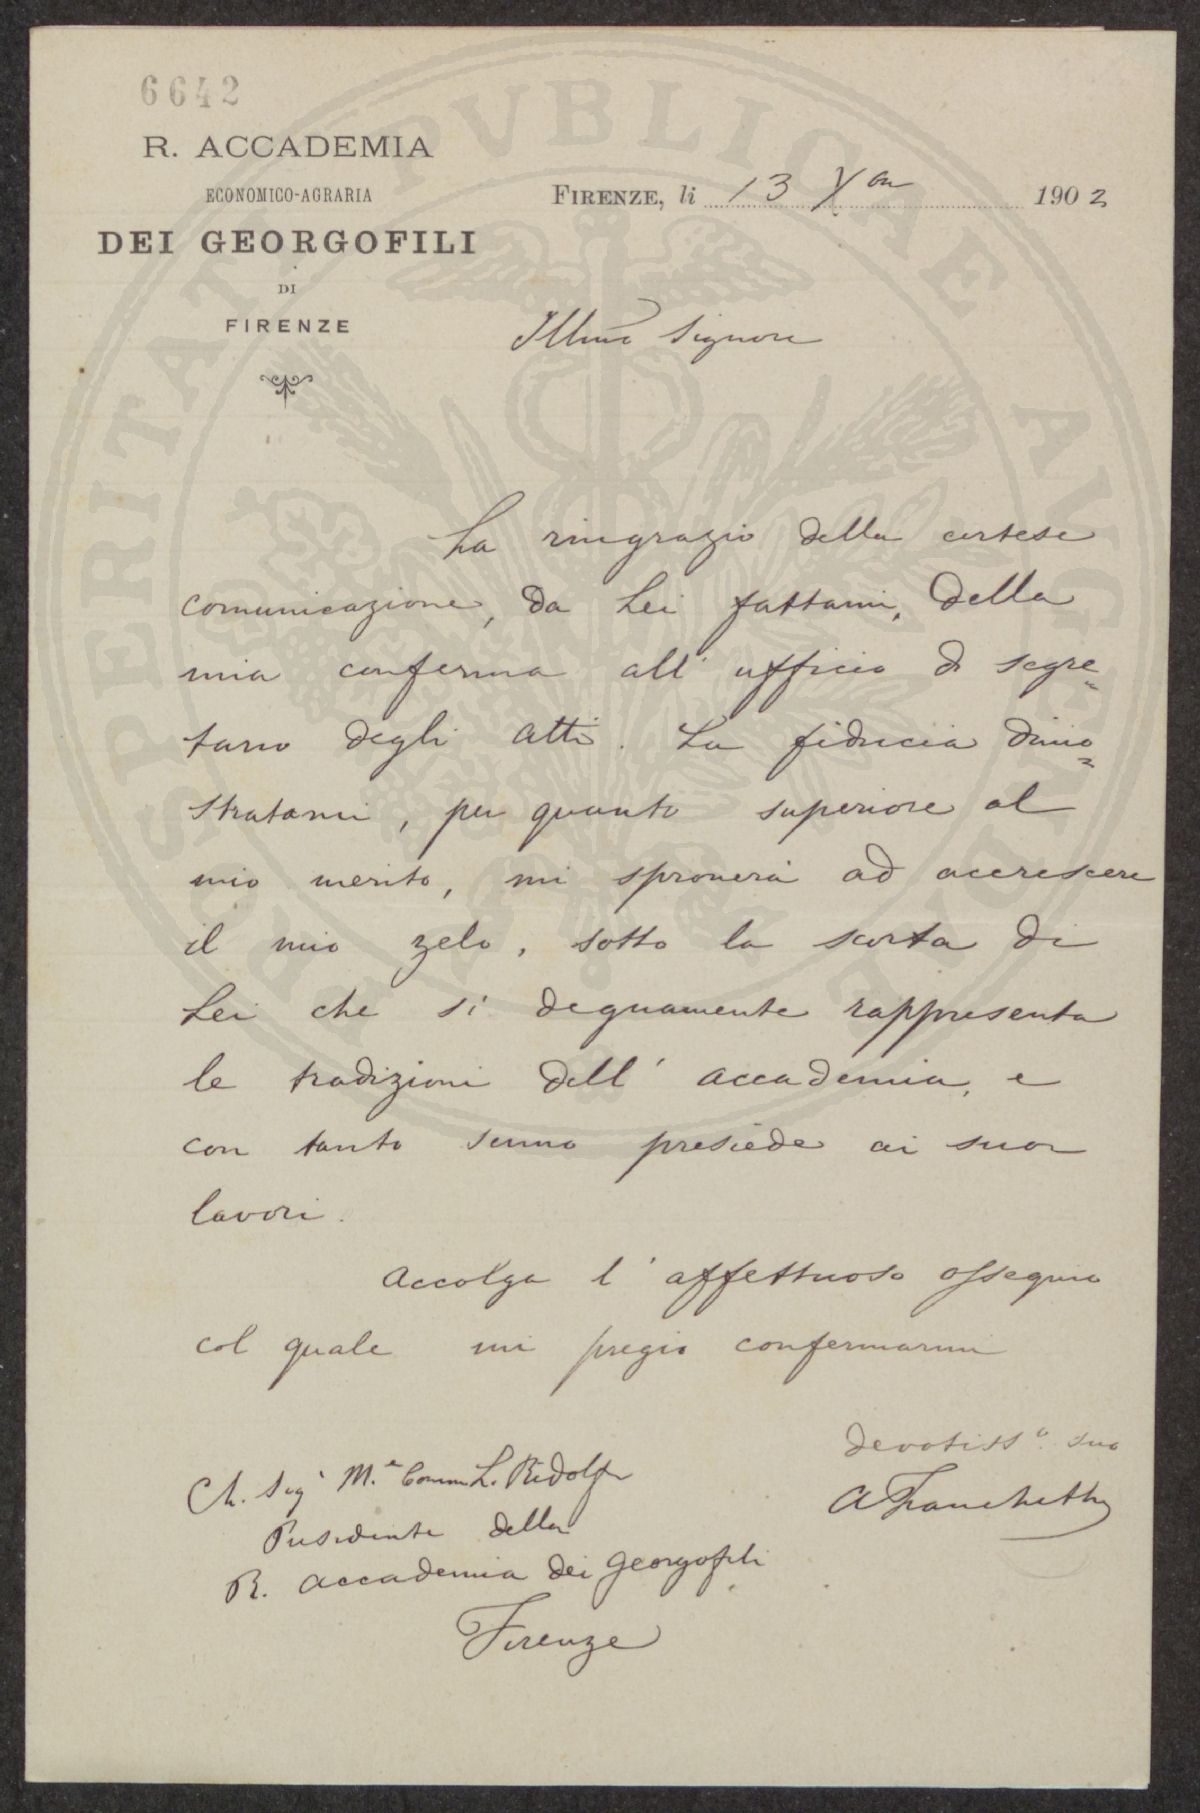 6642
R. ACCADEMIA
ECONOMICO-AGRARIA
DEI GEORGOFILI
DI
FIRENZE
FIRENZE, li 13 Xbre 1902
PROSPERITATI PVBLICAE AVGENDAE
Illmo Signore
La ringrazio della cortese
comunicazione, da Lei fattami, della
mia conferma all'ufficio di segre=
tario degli Atti. La fiducia dimo=
stratami, per quanto superiore al
mio merito, mi spronerà ad accrescere
il mio zelo, sotto la scorta di
Lei che sì degnamente rappresenta
le tradizioni dell'Accademia, e
con tanto senno presiede ai suoi
lavori.
Accolga l'affettuoso ossequio
col quale mi pregio confermarmi
devotiss.o suo
A Franchetti
Ch. Sigr M.e Comm. L. Ridolfi
Presidente della
R. Accademia dei Georgofili
Firenze